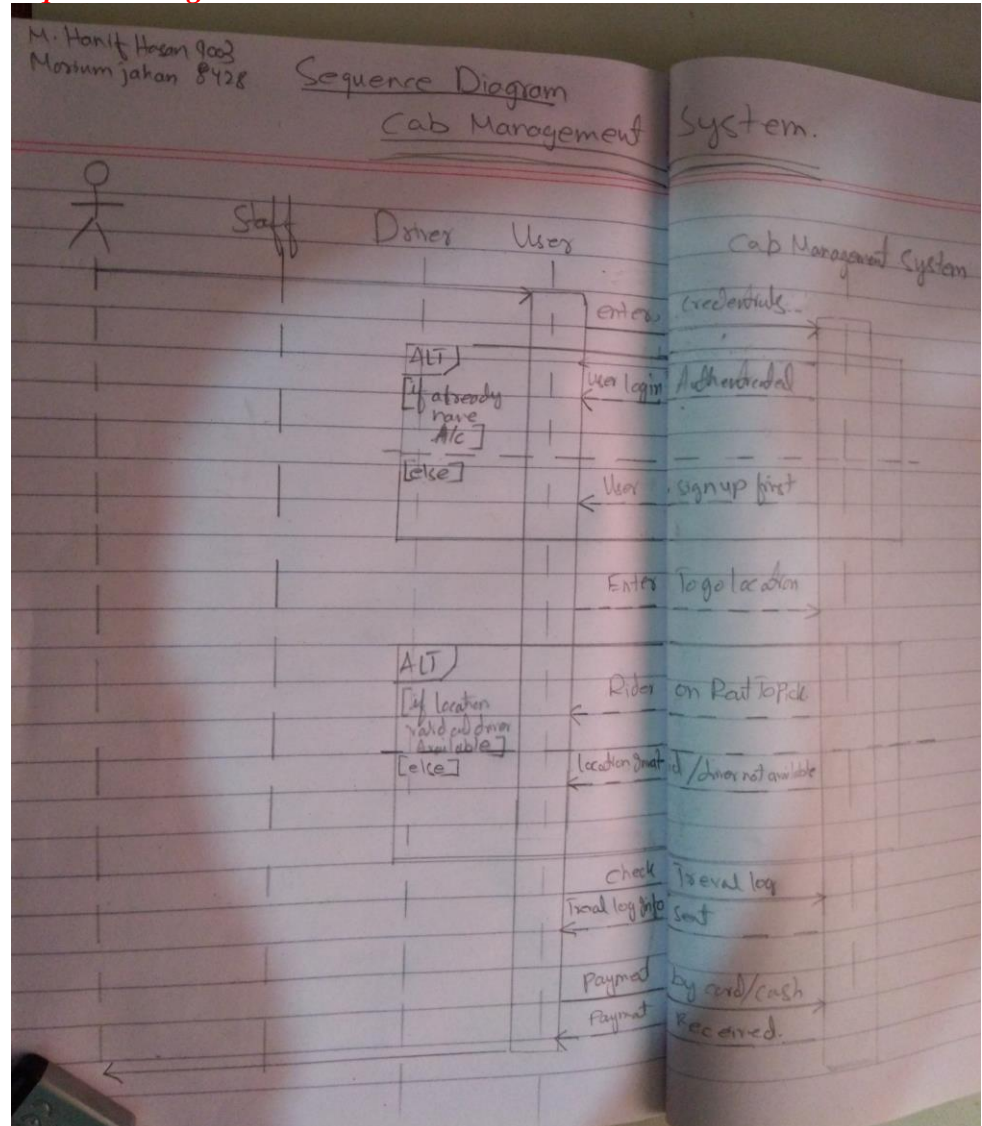 M. Hanif Hasan 9003
Morium jahan 8428
Sequence Diagram
Cab Management System.
Staff Driver User Cab Management System
enter credentials..
ALT
User login Authenticated
[if already
have
A/c]
[else]
User signup first
Enter To go location
ALT
Rider on Rout To Pick
[if location
valid and driver
Available]
[else]
location Invalid / driver not available
check Treval log
Treval log Info sent
Payment by card/cash
Payment Received.